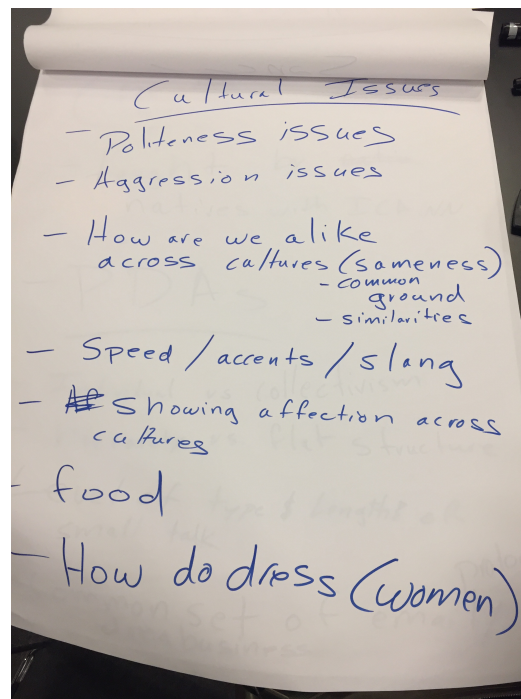 Cultural Issues
- Politeness issues
- Aggression issues
- How are we alike
across cultures (sameness)
- common
ground
- similarities
- Speed / accents / slang
- Showing affection across
cultures
- food
- How do dress (women)